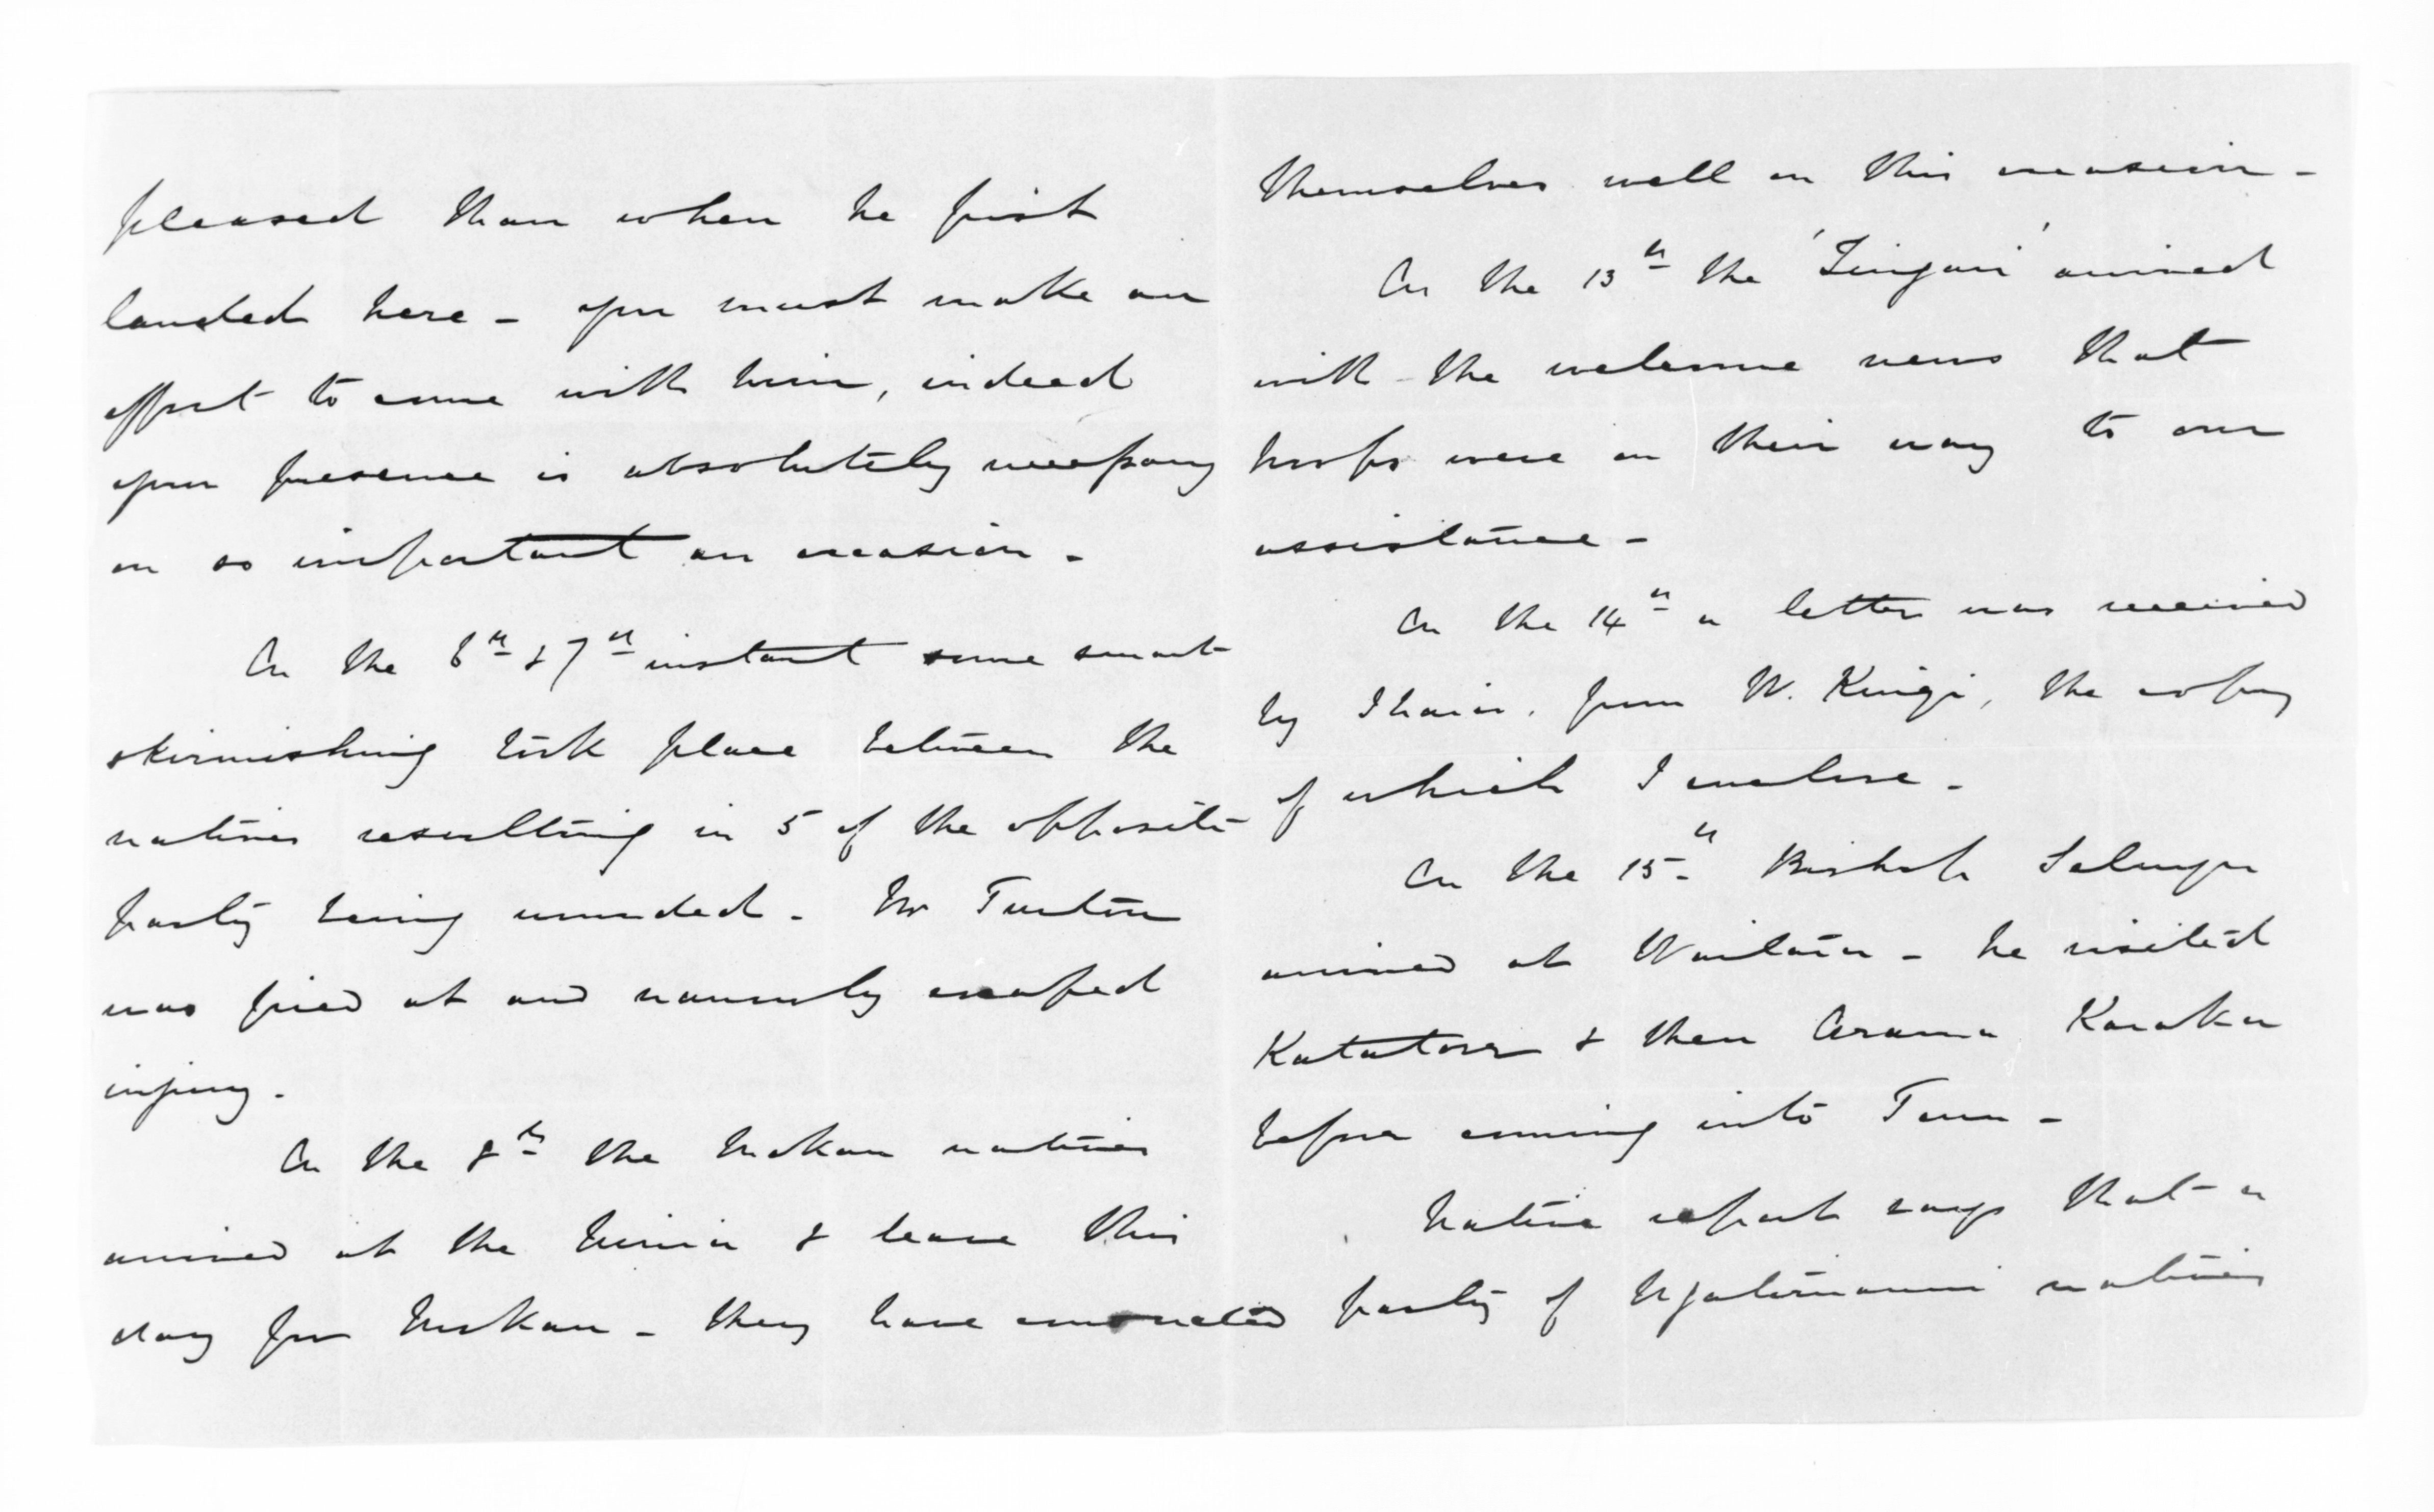 pleased than when he first
landed here - you must make an
effort to come with him, indeed
your presence is absolutely necessary
on so important an occasion -
On the 6th & 7th instant some smart
skirmishing took place between the
natives resulting in 5 of the opposite
party being wounded - Mr Turton
was fired at and narrowly escaped
injury -
On the 8th the Mokau natives
arrived at the Ninia & leave this
day for Mokau - they have conducted
themselves well on this occasion -
On the 13th the 'Zingari' arrived
with the welcome news that
troops were on their way to our
assistance -
On the 14th a letter was received
by Ihaia, from W. Kingi, the copy
of which I enclose -
On the 15th Bishop Selwyn
arrived at Waitara - he visited
Katatore & then Arama Karaka
before coming into Town -
Native report says that a
party of Ngatimaniapoto natives